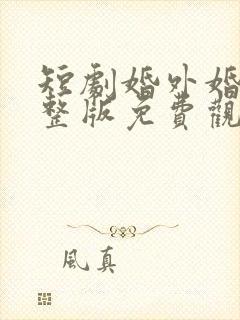 短劇婚外婚
整版免費觀
風真